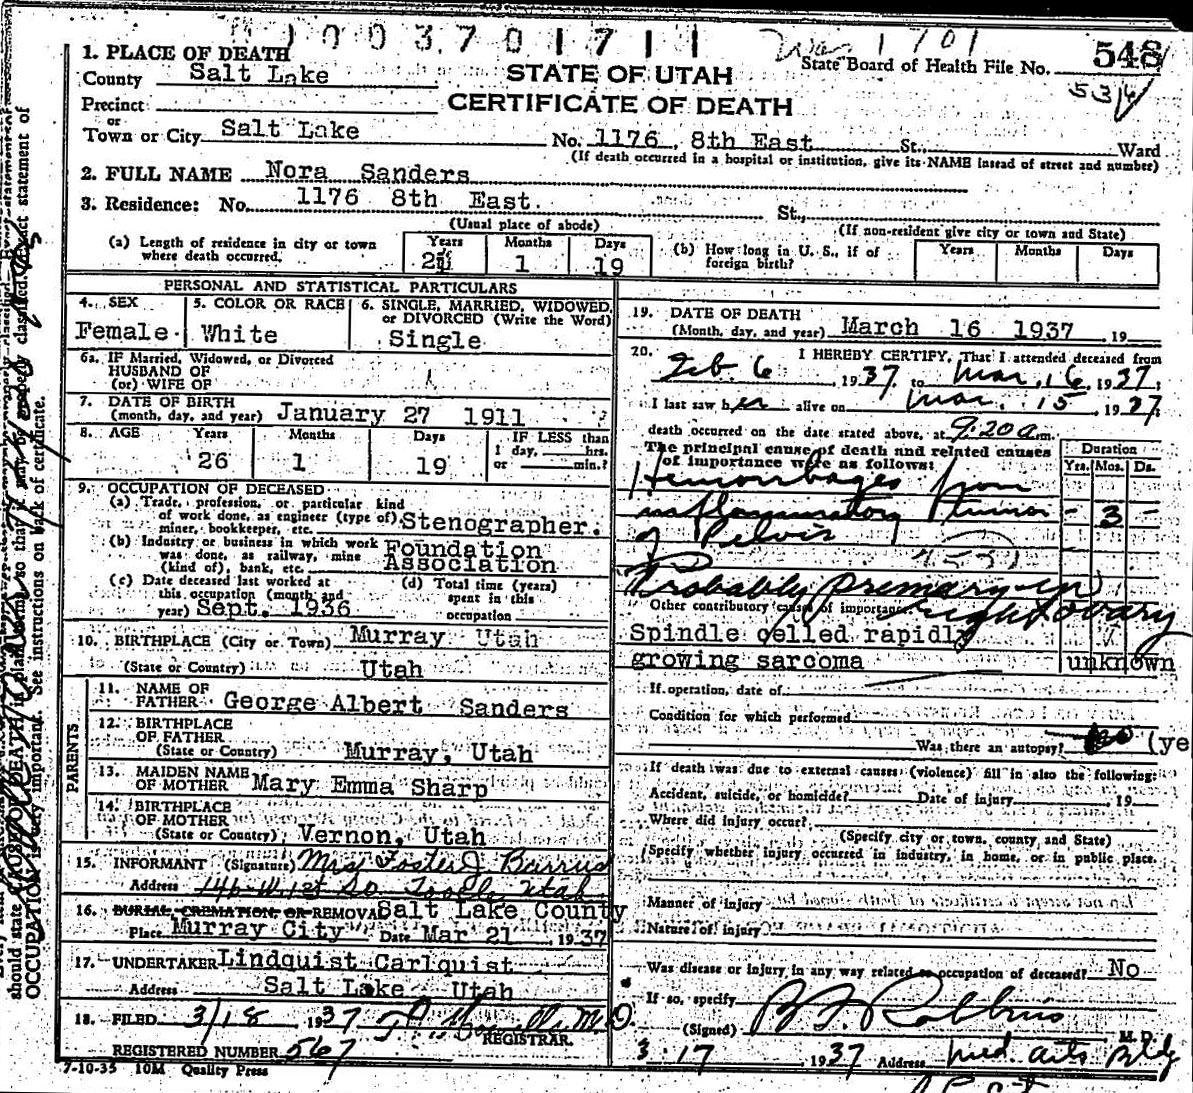 1003701711
1701
1. PLACE OF DEATH
County Salt Lake
STATE OF UTAH
State Board of Health File No. 548
534
Precinct
CERTIFICATE OF DEATH
or
Town or City Salt Lake No. 1176, 8th East St., Ward
(If death occurred in a hospital or institution, give its NAME instead of street and number)
2. FULL NAME Nora Sanders
3. Residence: No. 1176 8th East. St.,
(Usual place of abode) (If non-resident give city or town and State)
(a) Length of residence in city or town where death occurred. Years Months 1 Days 19
(b) How long in U. S., if of foreign birth? Years Months Days
PERSONAL AND STATISTICAL PARTICULARS
4. SEX Female
5. COLOR OR RACE White
6. SINGLE, MARRIED, WIDOWED, or DIVORCED (Write the Word) Single
6a. IF Married, Widowed, or Divorced
HUSBAND OF
(or) WIFE OF
7. DATE OF BIRTH
(month, day, and year) January 27 1911
8. AGE Years 26 Months 1 Days 19 IF LESS than 1 day, hrs. or min.?
9. OCCUPATION OF DECEASED
(a) Trade, profession, or particular kind
of work done, as engineer (type of),
miner, bookkeeper, etc. Stenographer.
(b) Industry or business in which work
was done, as railway, mine
(kind of), bank, etc. Foundation Association
(c) Date deceased last worked at
this occupation (month and
year) Sept. 1936
(d) Total time (years)
spent in this
occupation
10. BIRTHPLACE (City or Town) Murray Utah
(State or Country) Utah
PARENTS
11. NAME OF
FATHER George Albert Sanders
12. BIRTHPLACE
OF FATHER
(State or Country) Murray, Utah
13. MAIDEN NAME
OF MOTHER Mary Emma Sharp
14. BIRTHPLACE
OF MOTHER
(State or Country) Vernon, Utah
15. INFORMANT (Signature) Mrs Foster J. Barrus
Address 146 W 1st So Tooele Utah
16. BURIAL, CREMATION, OR REMOVAL Salt Lake County
Place Murray City Date Mar 21, 1937
17. UNDERTAKER Lindquist Carlquist
Address Salt Lake Utah
18. FILED 3/18, 1937 M.D.
REGISTRAR.
REGISTERED NUMBER 567
7-10-35 10M Quality Press
19. DATE OF DEATH
(Month, day, and year) March 16 1937 19
20. I HEREBY CERTIFY, That I attended deceased from
Feb. 6, 1937 to Mar. 16, 1937;
I last saw her alive on Mar. 15 1937
death occurred on the date stated above, at 9:20 a m.
The principal cause of death and related causes
of importance were as follows:
Duration
Yrs. Mos. Ds.
Hemorrhages from
inflammatory tumor - 3 -
of Pelvis
Probably primary in
right ovary
Other contributory causes of importance
Spindle celled rapidly
growing sarcoma unknown
If operation, date of
Condition for which performed
Was there an autopsy? no (ye
If death was due to external causes (violence) fill in also the following:
Accident, suicide, or homicide? Date of injury, 19
Where did injury occur?
(Specify city or town, county and State)
Specify whether injury occurred in industry, in home, or in public place.
Manner of injury
Nature of injury
Was disease or injury in any way related to occupation of deceased? No
If so, specify
(Signed) B F Robbins M. D.
3-17, 1937 Address Med. Arts Bldg
should state CAUSE OF DEATH in plain terms, so that it may be properly classified. Exact statement of
OCCUPATION is very important. See instructions on back of certificate.